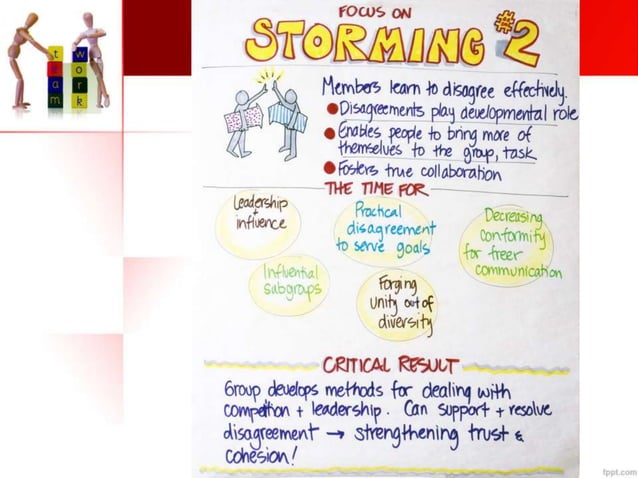 t w
e o
a r
m k
FOCUS ON
STORMING #2
Members learn to disagree effectively.
Disagreements play developmental role
Enables people to bring more of
themselves to the group, task
Fosters true collaboration
THE TIME FOR
Leadership
+
influence
Practical
disagreement
to serve goals
Decreasing
conformity
for freer
communication
Influential
subgroups
Forging
unity out of
diversity
CRITICAL RESULT
Group develops methods for dealing with
competition + leadership. Can support + resolve
disagreement → strengthening trust &
cohesion!
fppt.com